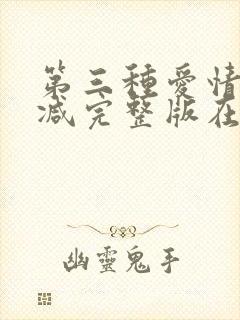 第三種愛情
减完整版在
幽靈鬼手